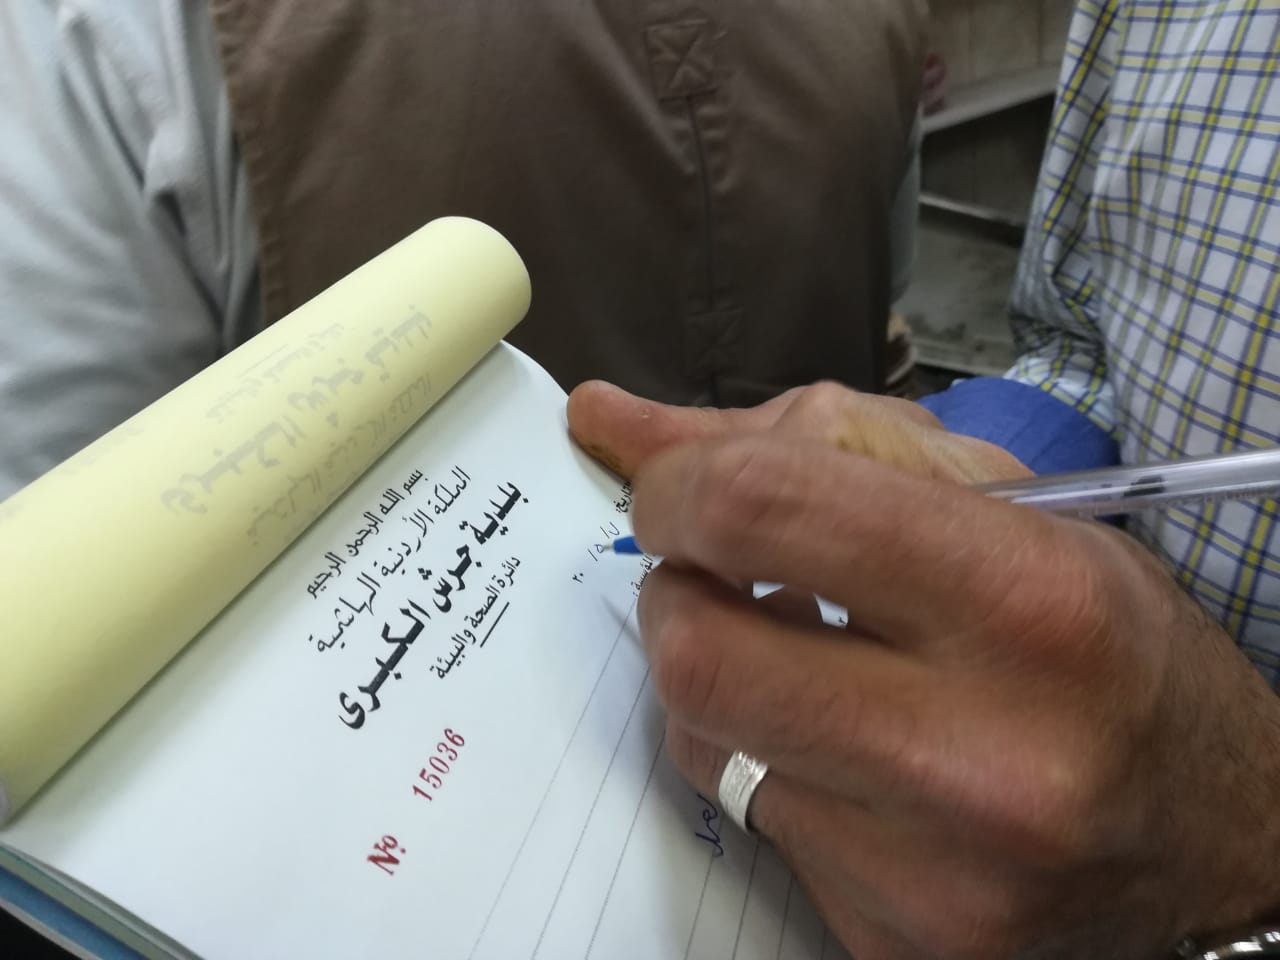 بسم الله الرحمن الرحيم
المملكة الأردنية الهاشمية
بلدية جرش الكبرى
دائرة الصحة والبيئة
Nº 15036
التاريخ:
٢٠